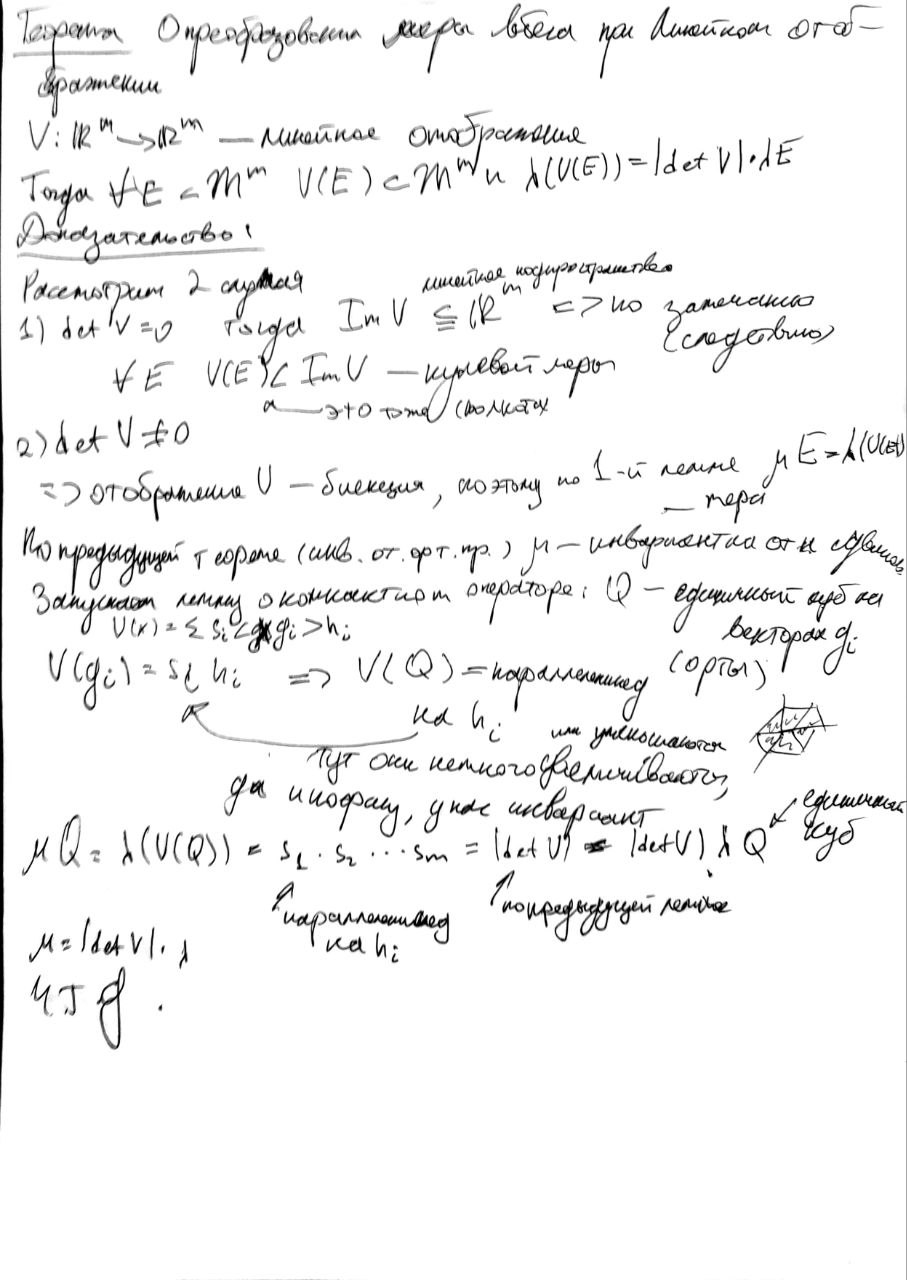 Теорема О преобразовании меры Лебега при линейном отоб-
ражении
V: ℝ^m → ℝ^m — линейное отображение
Тогда ∀E ⊂ M^m V(E) ⊂ M^m и λ(V(E)) = |det V|·λE
Доказательство:
Рассмотрим 2 случая
линейное подпространство
1) det V = 0 Тогда Im V ⊆ ℝ^m <=> по замечанию
(следствию)
∀E V(E) ⊂ Im V — нулевой меры
это тоже
2) det V ≠ 0
=> отображение V — биекция, поэтому по 1-й лемме μE = λ(V(E))
— мера
По предыдущей теореме (инв. от. орт. пр.) μ — инвариантна отн сдвигов
Запускаем лемму о компактном операторе: Q — единичный куб на
V(x) = Σ s_i <x g_i> h_i векторах g_i
V(g_i) = s_i h_i => V(Q) = параллелепипед (орты)
на h_i или уменьшаются
Тут они немного увеличиваются,
да и пофигу, у нас инвариант
μQ = λ(V(Q)) = s_1 · s_2 ··· s_m = |det V| = |det V| λQ единичный куб
параллелепипед по предыдущей лемме
на h_i
μ = |det V|·λ
ЧТД.